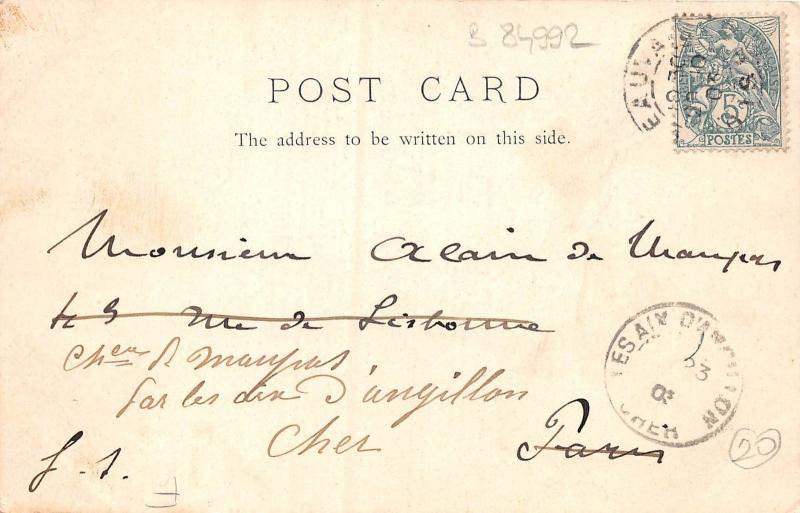 B 84992
POST CARD
The address to be written on this side.
5
POSTES
Monsieur Alain de Maupas
43 rue de Lisbonne
Chau de Maupas
Par les aix D'angillon
Cher
Paris
LES AIX D'ANGILLON
03
CHER
20